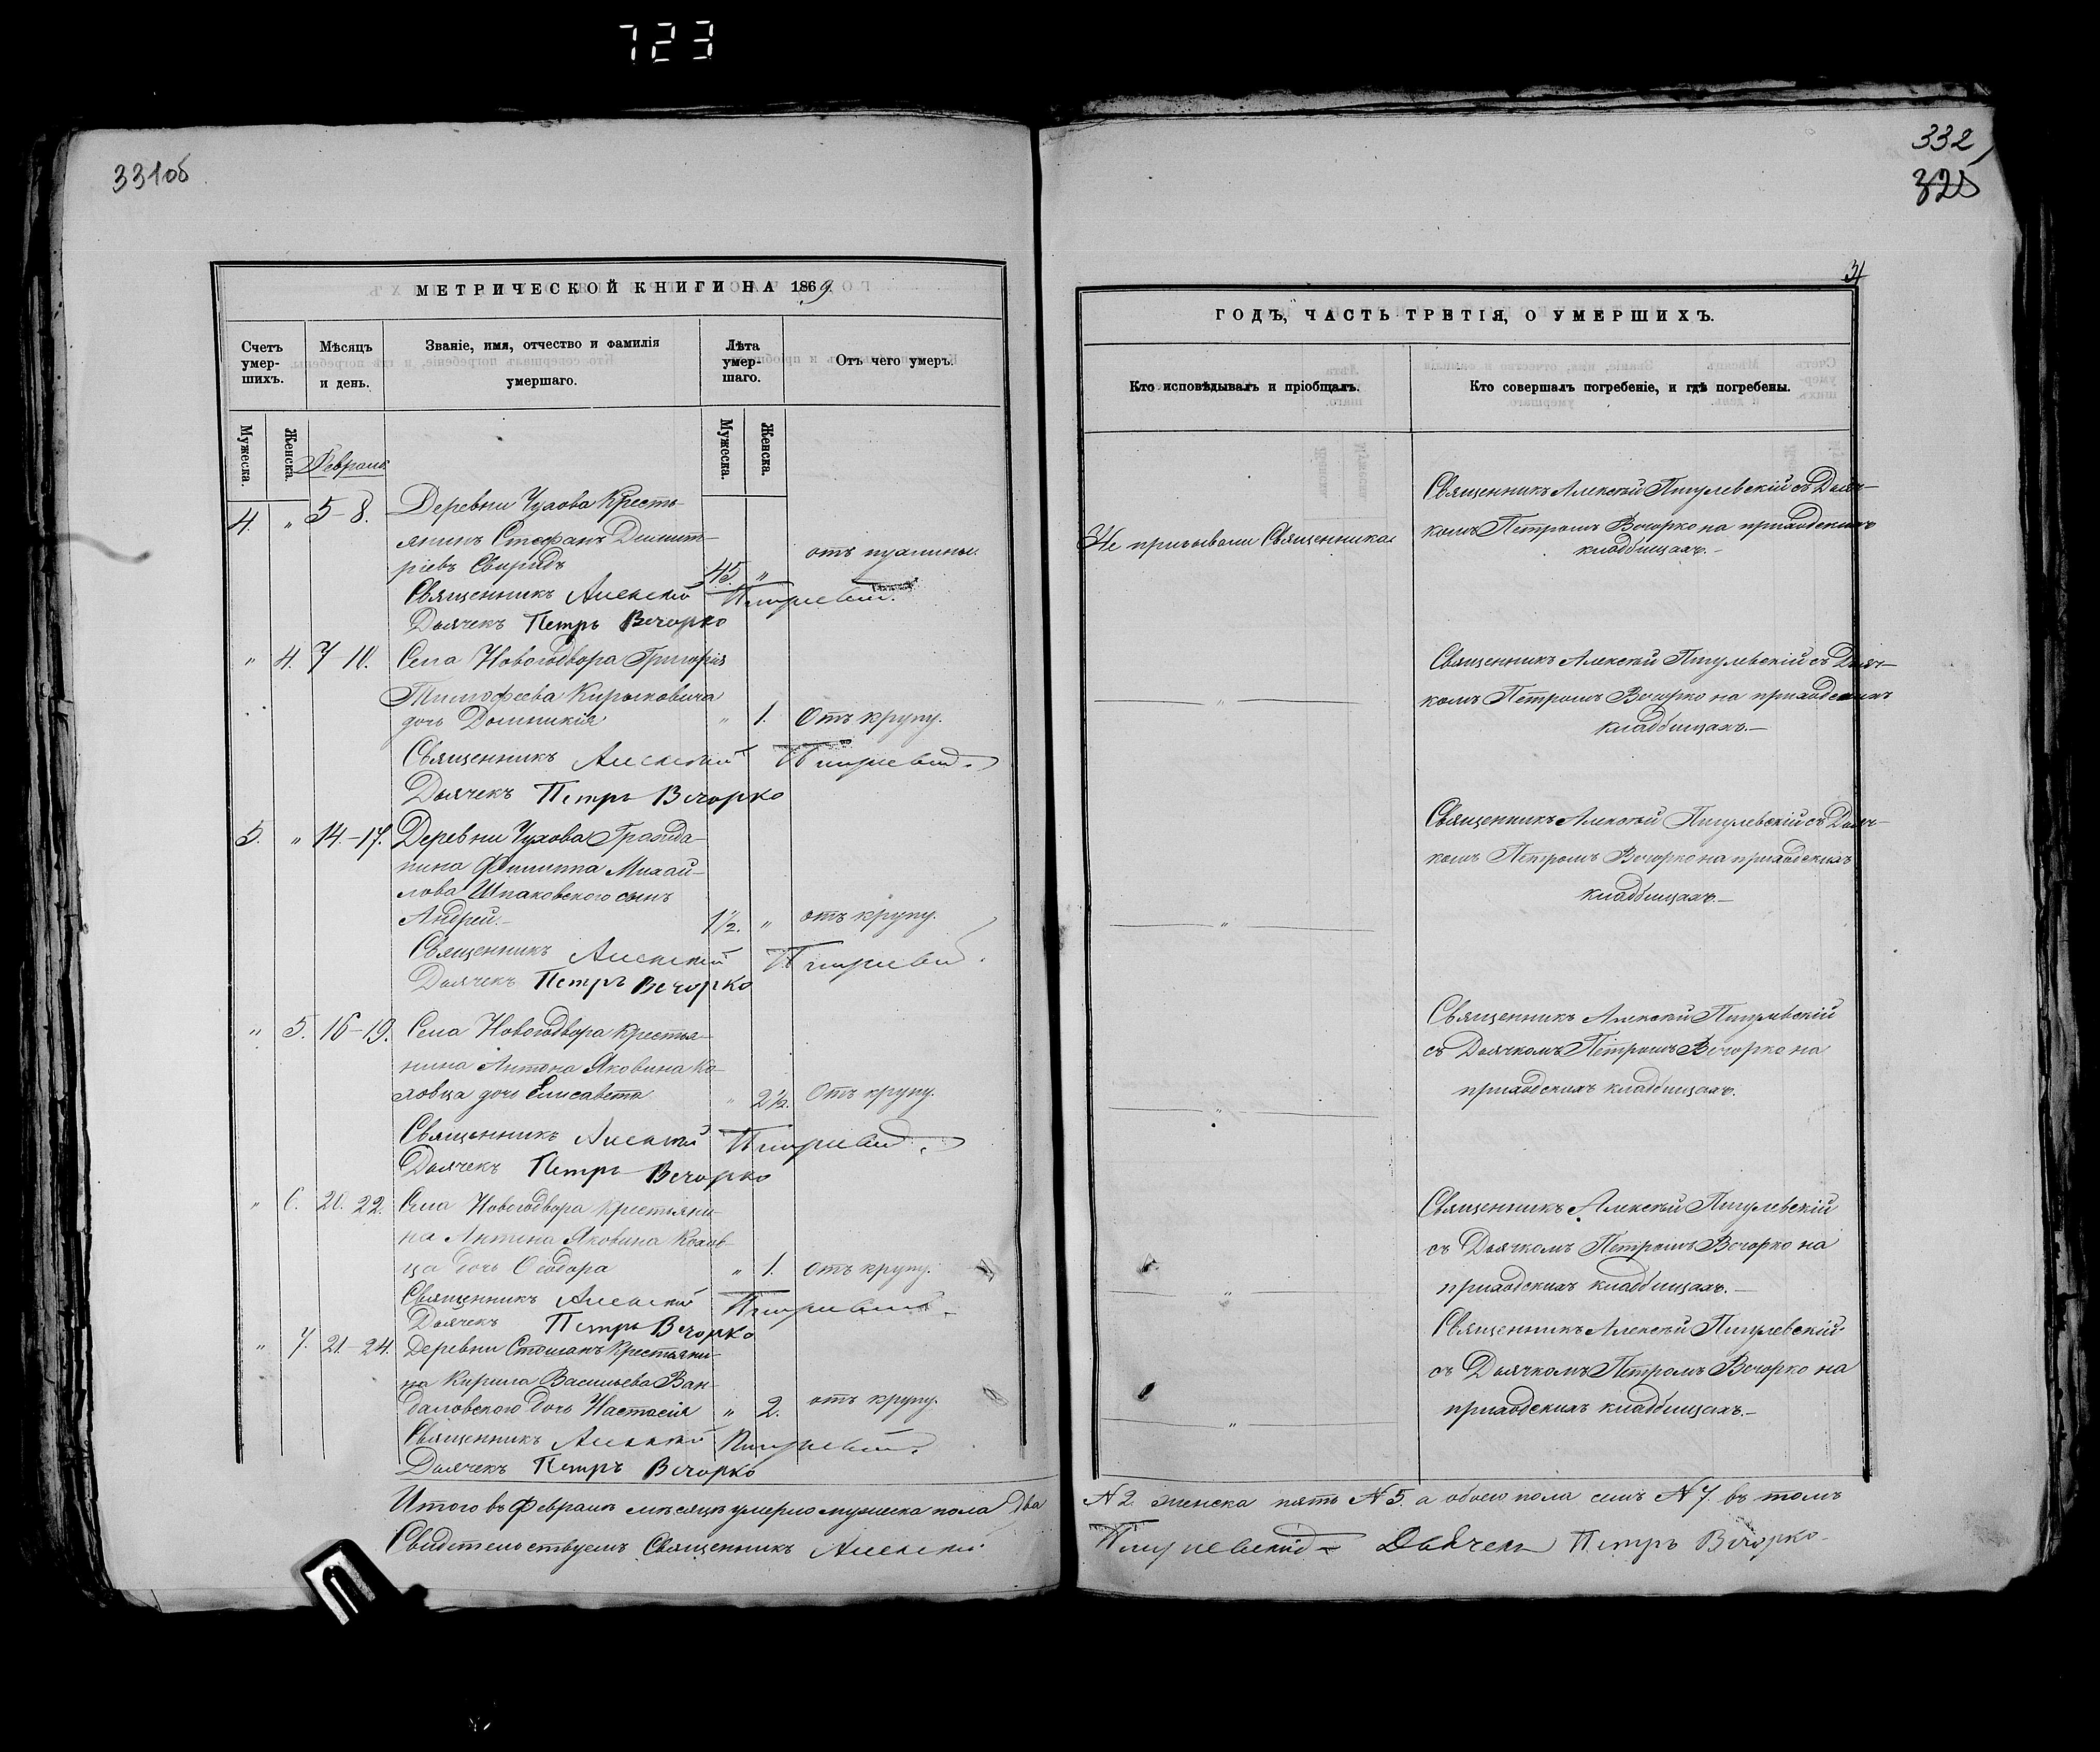 723
331об
332
328
31
МЕТРИЧЕСКОЙ КНИГИ НА 1869
Счетъ умер-шихъ.
Мѣсяцъ и день.
Званіе, имя, отчество и фамилія умершаго.
Лѣта умер-шаго.
Отъ чего умеръ.
Мужеска.
Женска.
Мужеска.
Женска.
Февраль
4. " 5-8. Деревни Чухова Кресть-
янинъ Стефанъ Димит-
ріевъ Свиридъ 45. "
Священникъ Алексѣй Пигулевскій
Дьячекъ Петръ Вечорко
" 4. 7 10. Села Новогодвора Григорія
Тимофеева Кирыковича
дочь Домникія " 1. Отъ крупу.
Священникъ Алексѣй Пигулевскій.
Дьячекъ Петръ Вечорко
5. " 14.-17. Деревни Чухова Гражда-
нина Филиппа Михай-
лова Шпаковского сынъ
Андрей.- 1½. " отъ крупу.
Священникъ Алексѣй Пигулевскій.
Дьячекъ Петръ Вечорко
" 5. 16-19. Села Новогодвора Крестья-
нина Антона Яковина Ко-
ховца дочь Елисавета " 2½. Отъ крупу.
Священникъ Алексѣй Пигулевскій.
Дьячекъ Петръ Вечорко
" 6. 20. 22. Села Новогодвора Крестьяни-
на Антона Яковина Кохов-
ца дочь Ѳеодора " 1. отъ крупу.
Священникъ Алексѣй Пигулевскій.
Дьячекъ Петръ Вечорко
" 7. 21-24. Деревни Крестьяни-
на Кирила Васильева Ван-
даловского дочь Настасія " 2. отъ крупу.
Священникъ Алексѣй Пигулевскій.
Дьячекъ Петръ Вечорко
Итого въ Февралѣ мѣсяцѣ умерло мужеска пола два
Свидѣтельствуемъ Священникъ Алексѣй
ГОДЪ, ЧАСТЬ ТРЕТІЯ, О УМЕРШИХЪ.
Кто исповѣдывалъ и пріобщалъ.
Кто совершалъ погребеніе, и гдѣ погребены.
Не призывали Священника
Священникъ Алексѣй Пигулевскій съ Дьяч-
комъ Петромъ Вечорко на приходскихъ
кладбищахъ.-
— " —
Священникъ Алексѣй Пигулевскій съ Дьяч-
комъ Петромъ Вечорко на приходскихъ
кладбищахъ.—
— " —
Священникъ Алексѣй Пигулевскій съ Дьяч-
комъ Петромъ Вечорко на приходскихъ
кладбищахъ.—
— " —
Священникъ Алексѣй Пигулевскій
съ Дьячкомъ Петромъ Вечорко на
приходскихъ кладбищахъ.
— " —
Священникъ Алексѣй Пигулевскій
съ Дьячкомъ Петромъ Вечорко на
приходскихъ кладбищахъ.—
— " —
Священникъ Алексѣй Пигулевскій
съ Дьячкомъ Петромъ Вечорко на
приходскихъ кладбищахъ.—
N 2. женска пять N 5. а обоего пола семь N 7. въ томъ
Пигулевскій - Дьячекъ Петръ Вечорко